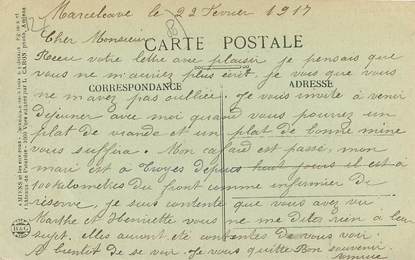 Marcelcave le 22 Février 1917
Cher Monsieur
CARTE POSTALE
Reçu votre lettre avec plaisir je pensais que
vous ne m'auriez plus écrit, je vois que vous
CORRESPONDANCE
ADRESSE
ne m'avez pas oubliée. Je vous invite à venir
déjeuner avec moi quand vous pourrez un
plat de viande et un plat de bonne mine
vous suffira. Mon cafard est passé, mon
mari est à Troyes depuis huit jours il est à
100 kilomètres du front comme infirmier de
réserve, je suis contente que vous avez vu
Marthe et Henriette vous ne me dites rien à leur
sujet. elles auront été contentes de vous voir.
A bientôt de se voir. Je vous quitte Bon souvenir.